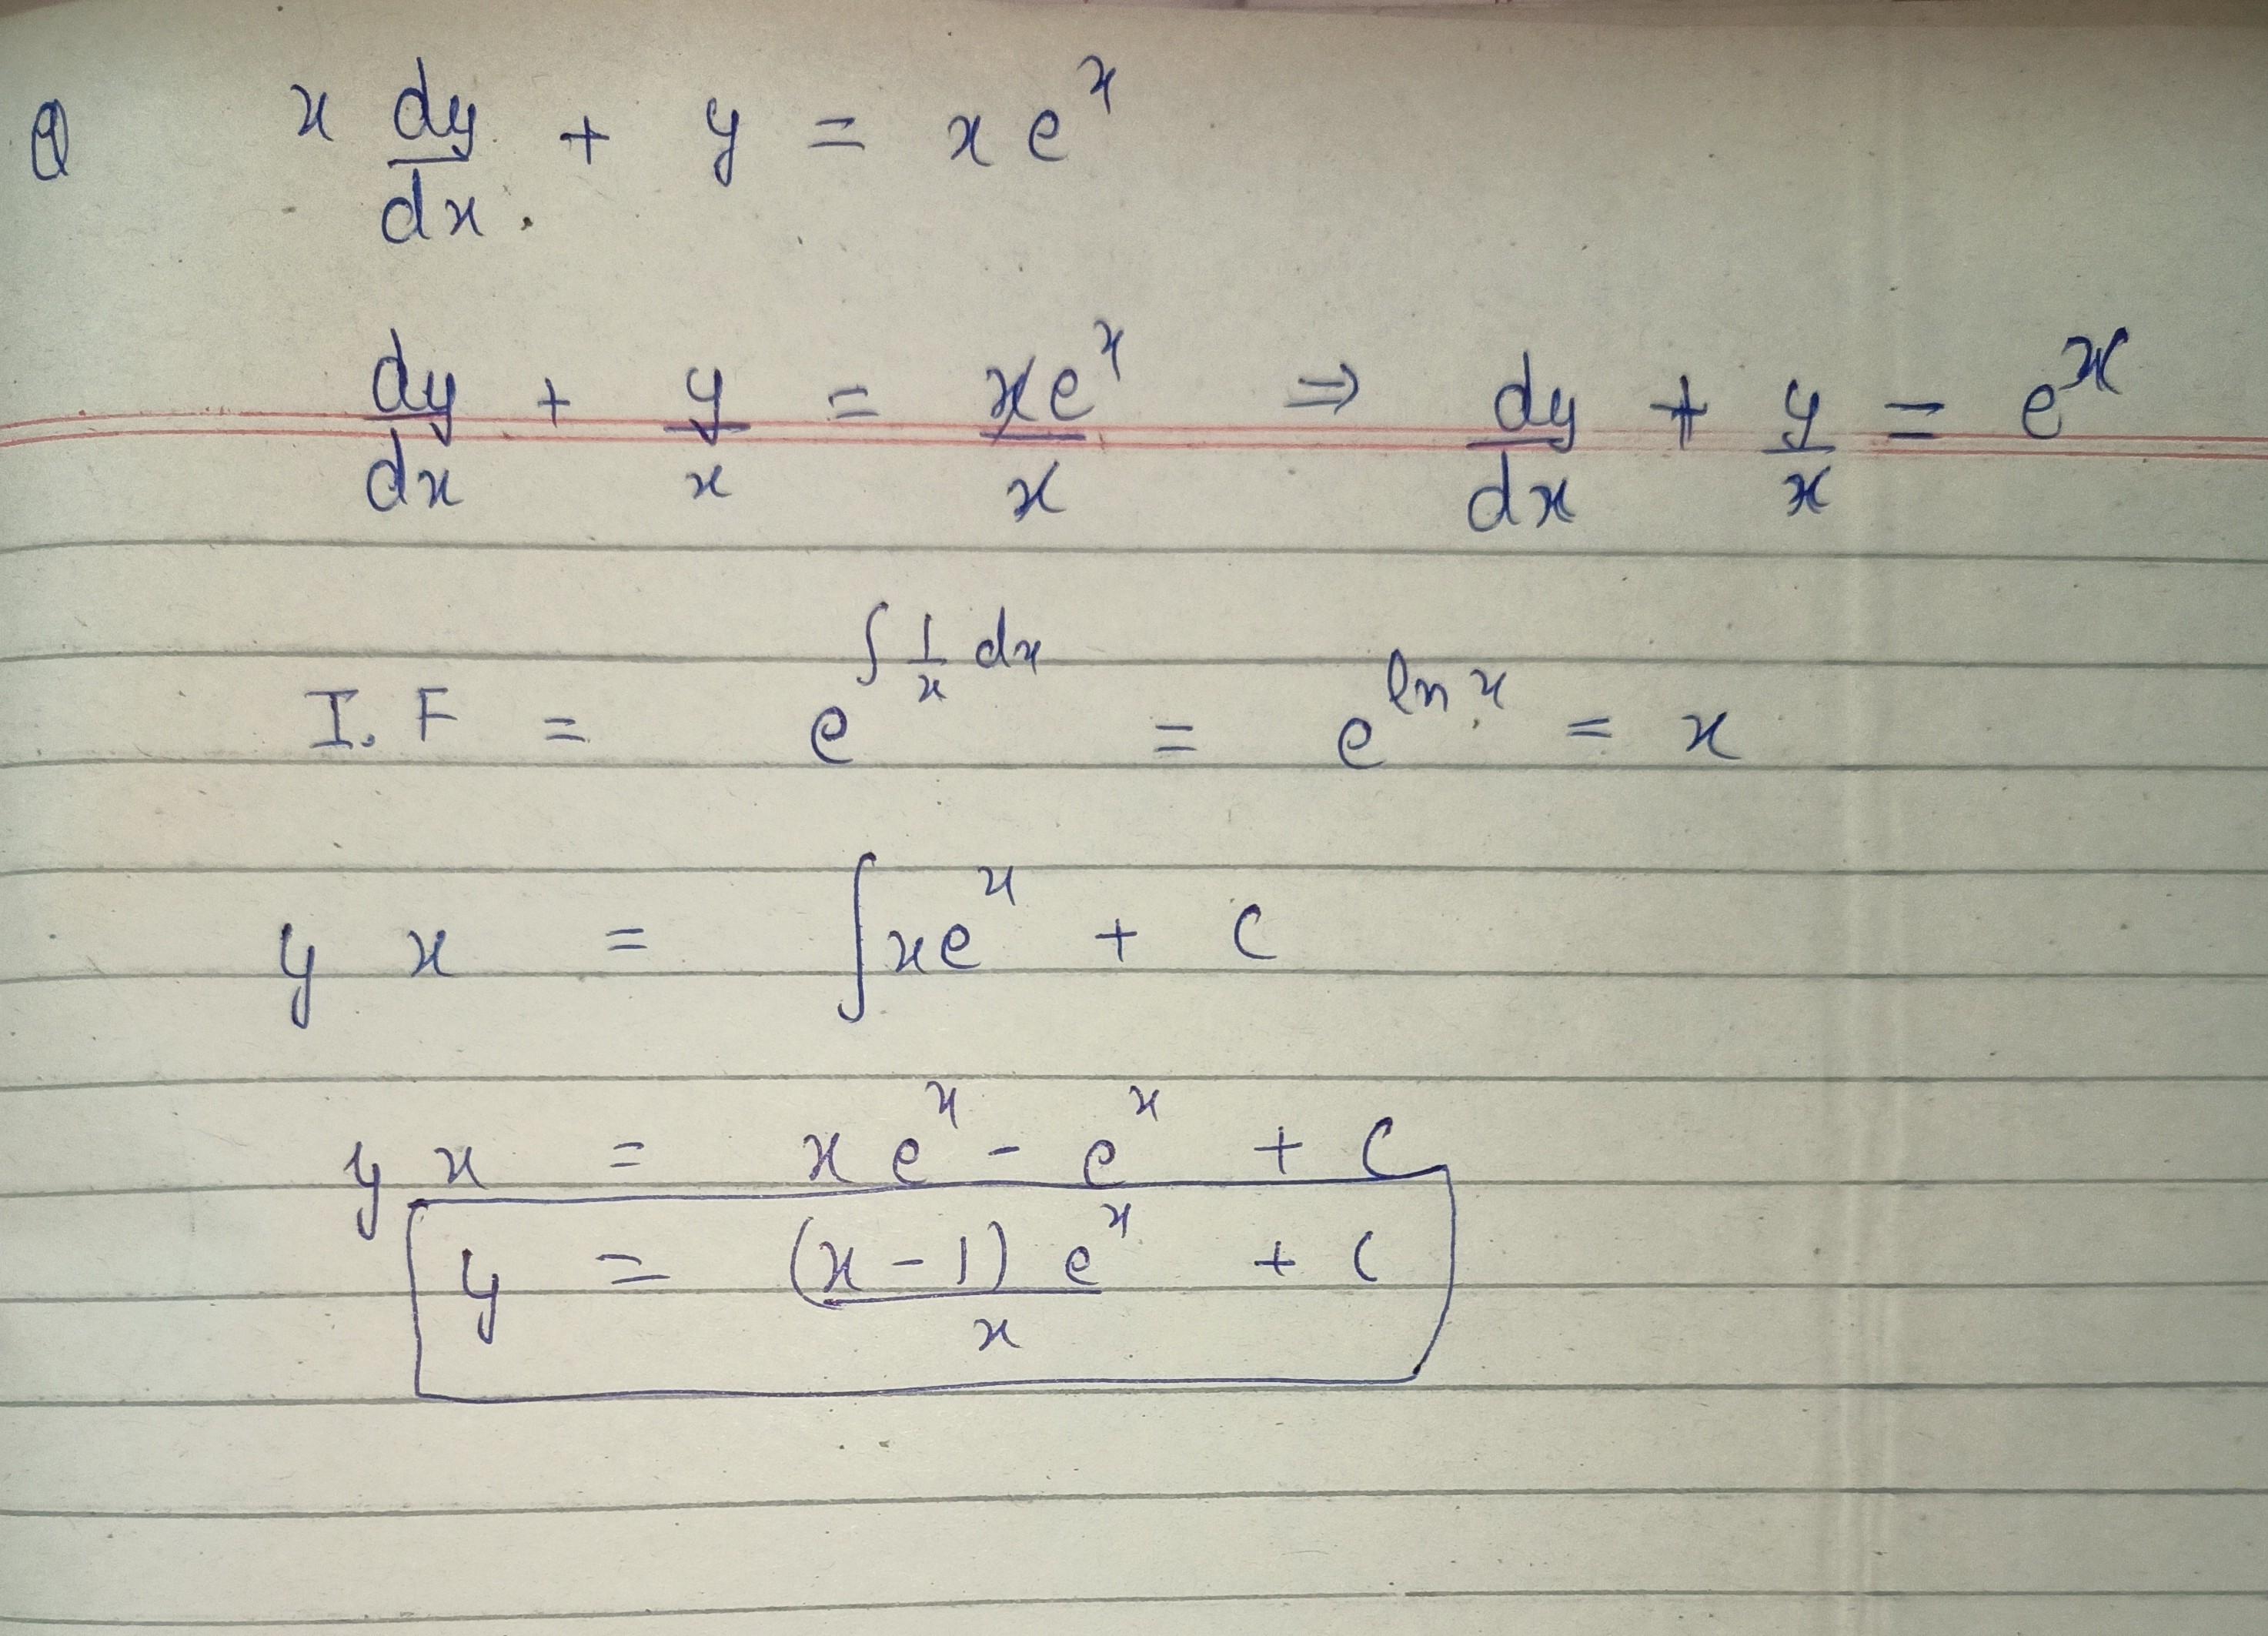 Q x dy/dx + y = x e^x
dy/dx + y/x = xe^x/x ⇒ dy/dx + y/x = e^x
I.F = e^∫ 1/x dx = e^ln x = x
y x = ∫xe^x + C
y x = x e^x - e^x + C
y = (x-1) e^x/x + C